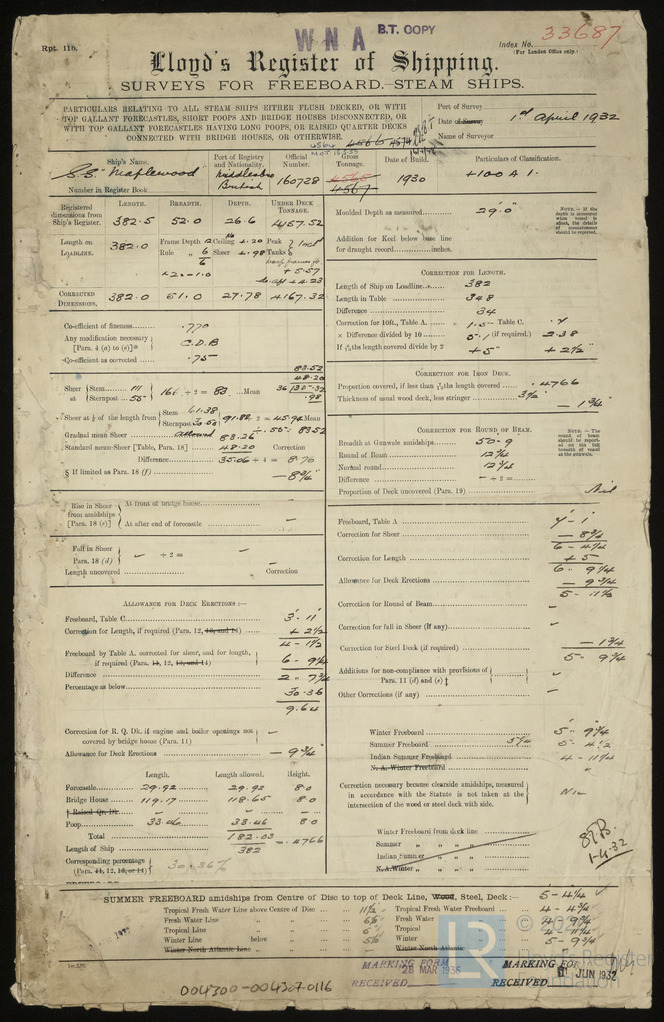 W N A B.T. COPY
Rpt. 11b.
Index No. 33687
(For London Office only.)
Lloyd's Register of Shipping.
SURVEYS FOR FREEBOARD.—STEAM SHIPS.
PARTICULARS RELATING TO ALL STEAM SHIPS EITHER FLUSH DECKED, OR WITH
TOP GALLANT FORECASTLES, SHORT POOPS AND BRIDGE HOUSES DISCONNECTED, OR
WITH TOP GALLANT FORECASTLES HAVING LONG POOPS, OR RAISED QUARTER DECKS
CONNECTED WITH BRIDGE HOUSES, OR OTHERWISE.
Port of Survey
Date of Survey 1st April 1932
Name of Surveyor
4564 4566 4574
Ship's Name. Port of Registry and Nationality. Official Number. Gross Tonnage. Date of Build. Particulars of Classification.
S.S. "Maplewood" Middlesbro British 160728 4565 4567 1930 +100 A 1.
Number in Register Book
Registered dimensions from Ship's Register. LENGTH. 382.5 BREADTH. 52.0 DEPTH. 26.6 UNDER DECK TONNAGE. 4157.52
Length on LOADLINE. 382.0 Frame Depth Ceiling .20 Peak Tanks Incl
Rule 6 Sheer .98
+ 5.57
+ 4.23
CORRECTED DIMENSIONS. 382.0 51.0 27.78 4167.32
Moulded Depth as measured 29'.0"
NOTE.—If the depth is measured when vessel is afloat, the details of measurement should be reported.
Addition for Keel below base line
for draught record inches.
CORRECTION FOR LENGTH.
Length of Ship on Loadline 382
Length in Table 348
Difference 34
Correction for 10ft., Table A. 1.5 Table C. .7
× Difference divided by 10 5.1 (if required.) 2.38
If 6/10ths length covered divide by 2 +5" +2½"
Co-efficient of fineness .770
Any modification necessary [Para. 4 (a) to (e)]* C.D.B
Co-efficient as corrected .75
83.52
48.20
36 ) 35.32
.98
Sheer at { Stem 111 Sternpost 55 } 166 ÷ 2 = 83 Mean
Sheer at ⅛ of the length from { Stem 61.38 Sternpost 30.50 } 91.88 ÷ 2 = 45.94 Mean
÷ .55 = 83.52
Gradual mean Sheer allowed 83.26
Standard mean Sheer [Table, Para. 18] 48.20 Correction
Difference 35.06 ÷ 4 = 8.76
§ If limited as Para. 18 (f) — 8¾"
CORRECTION FOR IRON DECK.
Proportion covered, if less than 7/10ths length covered .4766
Thickness of usual wood deck, less stringer 3½"
— 1¾"
CORRECTION FOR ROUND OF BEAM.
NOTE.—The round of beam should be reported on the full breadth of vessel at the gunwale.
Breadth at Gunwale amidships 50-9
Round of Beam 12¾
Normal round 12¾
Difference – ÷ 2 = –
Proportion of Deck uncovered (Para. 19) Nil
Rise in Sheer from amidships [Para. 18 (e)]
At front of bridge house –
At after end of forecastle –
Fall in Sheer Para. 18 (d) – ÷ 2 = –
Length uncovered Correction
Freeboard, Table A 7'-1"
Correction for Sheer — 8¾
6 - 4¼
Correction for Length + 5
6 - 9¼
Allowance for Deck Erections — 9¾
5 - 11½
Correction for Round of Beam –
Correction for fall in Sheer (If any) –
Correction for Steel Deck (if required) — 1¾
5 - 9¾
Additions for non-compliance with provisions of Para. 11 (d) and (e) ‡ –
Other Corrections (if any) –
ALLOWANCE FOR DECK ERECTIONS :—
Freeboard, Table C 3'. 11"
Correction for Length, if required (Para. 12, 13, and 14) + 2½
4 - 1½
Freeboard by Table A. corrected for sheer, and for length, if required (Para. 11, 12, 13, and 14) 6 - 9¼
Difference 2 - 7¾
Percentage as below 30.36
9.64
Correction for R. Q. Dk. if engine and boiler openings not covered by bridge house (Para. 11) –
Allowance for Deck Erections — 9¾"
Length. Length allowed. Height.
Forecastle 29.92 29.92 8.0
Bridge House 119.17 118.65 8.0
† Raised Qr. Dk. – – –
Poop 33.46 33.46 8.0
Total 182.03 = .4766
Length of Ship 382
Corresponding percentage (Para. 11, 12, 13, or 14) 30.36%
Winter Freeboard 5' 9¾"
Summer Freeboard 5 - 4½
Indian Summer Freeboard 4 - 11¼
N. A. Winter Freeboard "
Correction necessary because clearside amidships, measured
in accordance with the Statute is not taken at the
intersection of the wood or steel deck with side. Nil
Winter Freeboard from deck line
Summer " " " "
Indian Summer " " " "
N. A. Winter " " " "
1-4-32
SUMMER FREEBOARD amidships from Centre of Disc to top of Deck Line, Wood, Steel, Deck:— 5-4¼
Tropical Fresh Water Line above Centre of Disc 11½" Tropical Fresh Water Freeboard 4 - 4¾
Fresh Water Line " " Fresh Water " 4 - 9¾
Tropical Line " " Tropical "
Winter Line below " 5½" Winter " 5 - 9¾
Winter North Atlantic Line " " Winter North Atlantic "
MARKING FORM RECEIVED 28 MAR 1936
MARKING FORM RECEIVED 1 JUN 1932
004300-004307-0116
LR
Lloyd's Register Foundation